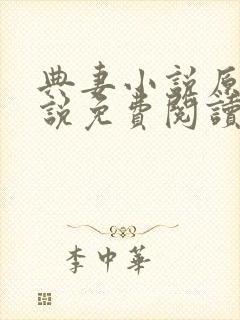 典妻小説原
説免費閱讀
李中華